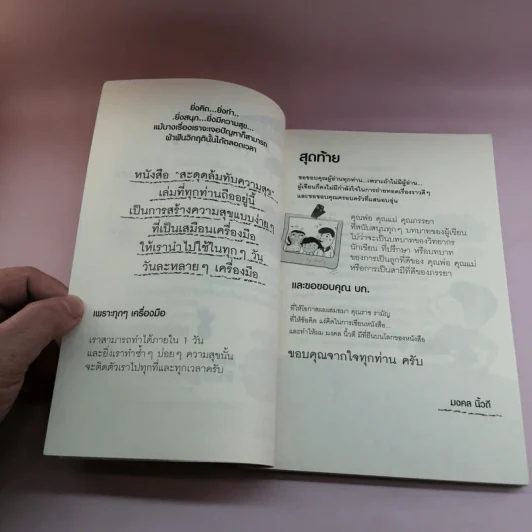 ยิ่งคิด...ยิ่งทำ..
.ยิ่งสนุก...ยิ่งมีความสุข...
แม้บางเรื่องเราจะเจอปัญหาก็สามารถ
ฝ่าฟันวิกฤตินั้นได้ตลอดเวลา
หนังสือ "สะดุดล้มทับความสุข"
เล่มที่ทุกท่านถืออยู่นี้
เป็นการสร้างความสุขแบบง่ายๆ
ที่เป็นเสมือนเครื่องมือ
ให้เรานำไปใช้ในทุกๆ วัน
วันละหลายๆ เครื่องมือ
เพราะทุกๆ เครื่องมือ
เราสามารถทำได้ภายใน 1 วัน
และยิ่งเราทำซ้ำๆ บ่อยๆ ความสุขนั้น
จะติดตัวเราไปทุกที่และทุกเวลาครับ
สุดท้าย
ขอขอบคุณผู้อ่านทุกท่าน...เพราะถ้าไม่มีผู้อ่าน..
ผู้เขียนก็คงไม่มีกำลังใจในการถ่ายทอดเรื่องราวดีๆ
และขอขอบคุณครอบครัวที่แสนอบอุ่น
คุณพ่อ คุณแม่ คุณภรรยา
ที่สนับสนุนทุกๆ บทบาทของผู้เขียน
ไม่ว่าจะเป็นบทบาทของวิทยากร
นักเขียน ที่ปรึกษา หรือบทบาท
ของการเป็นลูกที่ดีของ คุณพ่อ คุณแม่
หรือการเป็นสามีที่ดีของภรรยา
และขอขอบคุณ บก.
ที่ให้โอกาสผมเสมอมา คุณราช รามัญ
ที่ให้ข้อคิด แง่คิดในการเขียนหนังสือ...
และทำให้ผม มงคล นิ้วดี มีที่ยืนบนโลกของหนังสือ
ขอบคุณจากใจทุกท่าน ครับ
มงคล นิ้วดี